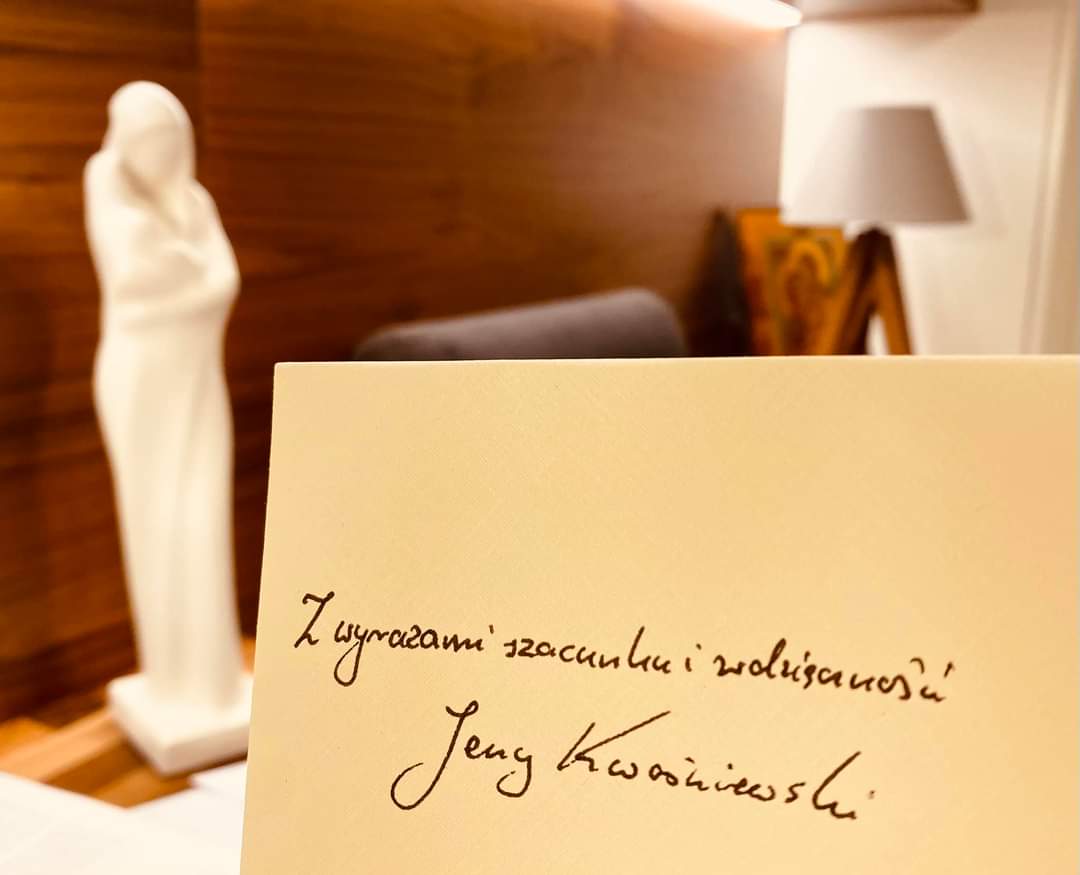 Z wyrazami szacunku i wdzięczności
Jerzy Kwaśniewski